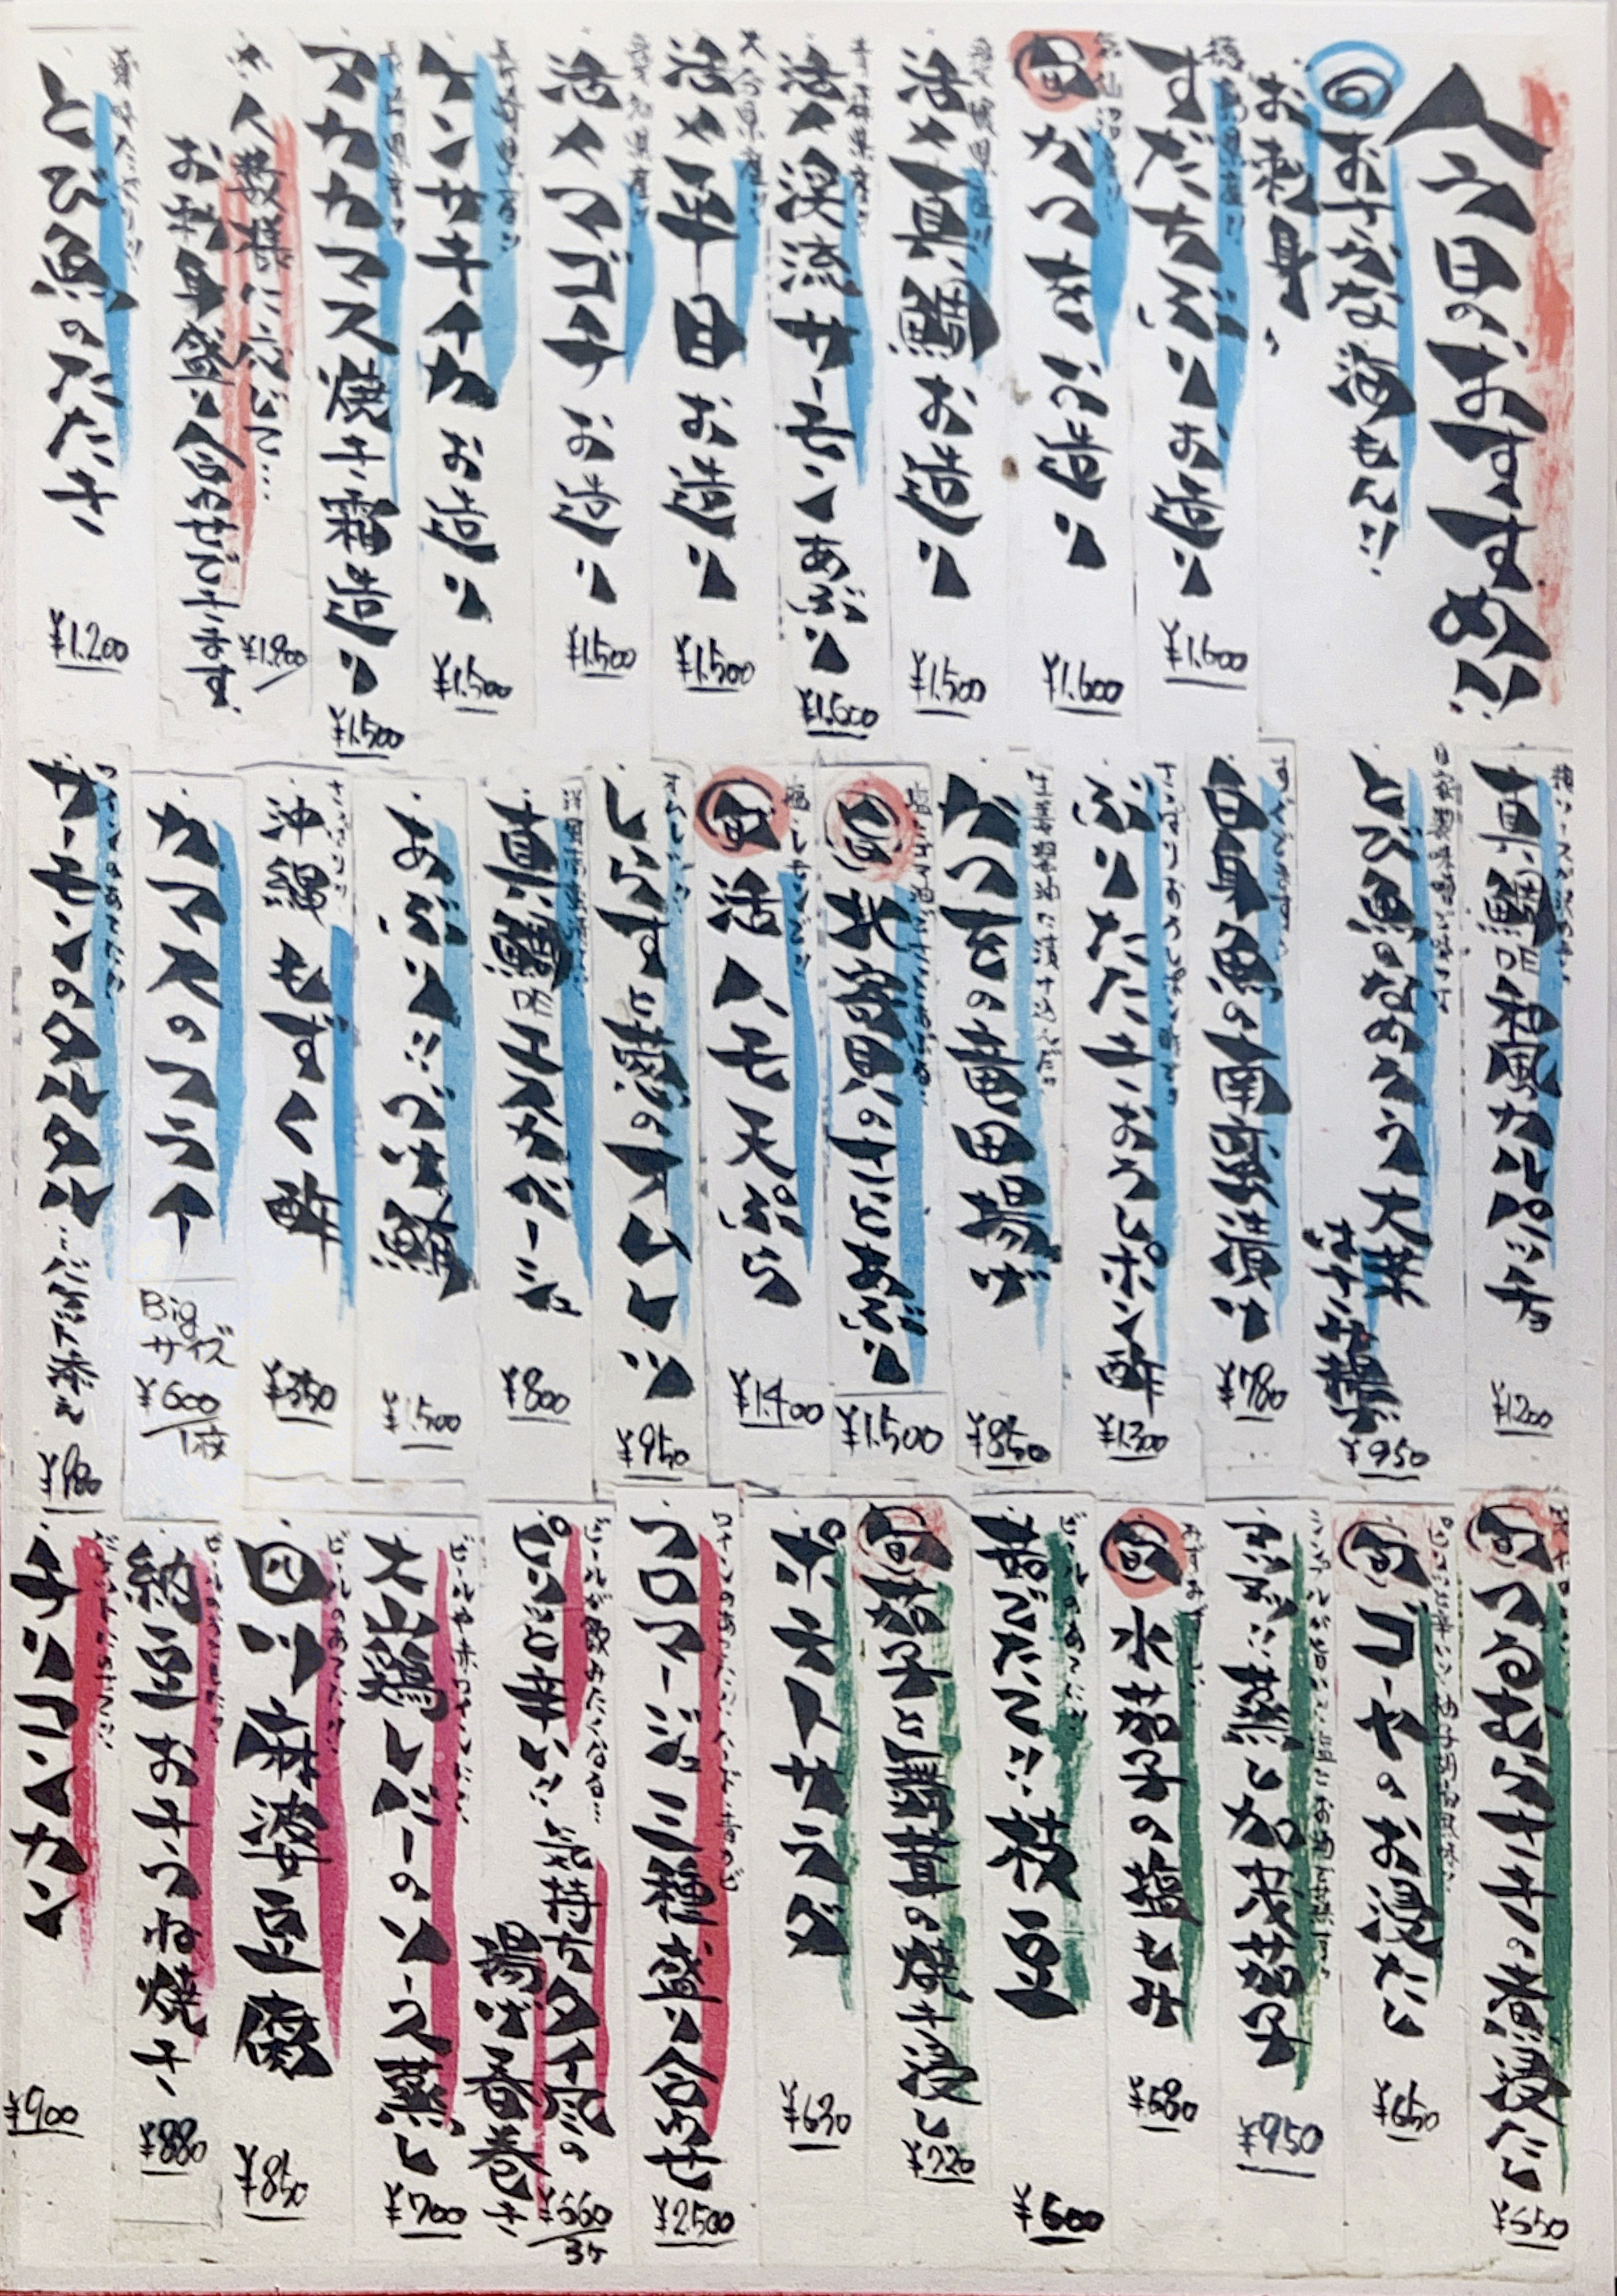 今日のおすすめ!!
旬 お手がな海もん!!
お刺身
徳島県産!!
すだちぶりお造り
¥1.600
気仙沼
旬 かつを お造り
¥1.600
愛媛県産!!
活〆真鯛お造り
¥1.500
青森県産!!
活〆渓流サーモンあぶり
¥1.600
大分県産!!
活〆平目お造り
¥1.500
愛知県産!!
活〆マゴチお造り
¥1.500
長崎県産!!
ケンサキイカお造り
¥1.500
アカカマス焼き霜造り
¥1.500
※人数様に応じて…
お刺身盛り合わせできます。
¥1.800
とび魚のたたき
¥1.200
真鯛の和風カルパッチョ
¥1.200
とび魚のなめろう大葉
はさみ揚げ
¥950
白身魚の南蛮漬け
¥780
さっぱりおろしポン酢で!!
ぶりたたきおろしポン酢
¥1.300
生姜醤油に漬け込んだ!!
かつをの竜田揚げ
¥850
旬 北寄貝のさっとあぶり
¥1.500
塩レモンで!!
旬 活ハモ天ぷら
¥1.400
しらすと葱のオムレツ
¥950
真鯛のエスカベーシュ
¥800
あぶり!!づけ鮪
¥1.500
さっぱり!!
沖縄もずく酢
¥350
カマスのフライ
Bigサイズ
¥600/1枚
サーモンのタルタル…バゲット添え
¥980
旬 つるむらさきの煮浸だし
¥550
ピリッと辛い!! 柚子胡椒風味!!
旬 ゴーヤのお浸だし
¥650
蒸し加茂茄子
¥950
旬 水茄子の塩もみ
¥680
ビールのあてに!!
茹でたて!!枝豆
¥600
旬 茄子と舞茸の焼き浸し
¥720
ポテトサラダ
¥630
フロマージュ三種盛り合わせ
¥2.500
ビールが飲みたくなる…
ピリッと辛い!!気持ちタイ風の
揚げ春巻き
¥660/3ケ
ビールや赤ワインに!!
大山鶏レバーのソース蒸し
¥700
ビールのあてに!!
四川麻婆豆腐
¥850
納豆おきつね焼き
¥880
チリコンカン
¥900